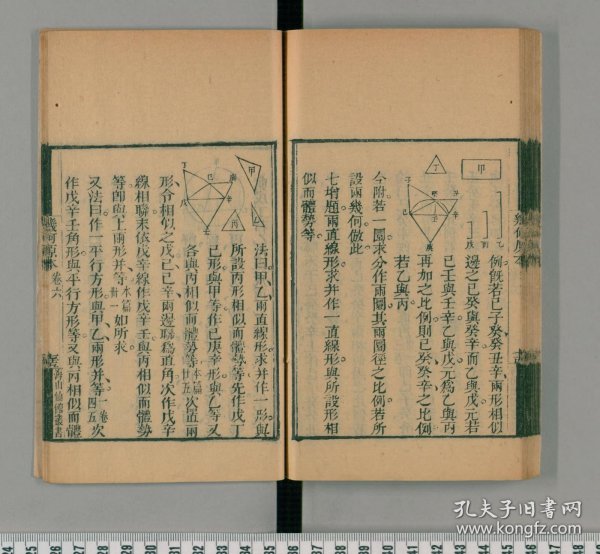 例旣若己子癸癸丑辛兩形相似
邊之己癸與癸辛而乙與戊元若
己壬與壬辛乙與戊元爲乙與丙
再加之比例則己癸癸辛之比例
若乙與丙
今附若一圜求分作兩圜其兩圜徑之比例若所
設兩幾何倣此
七增題兩直線形求并作一直線形與所設形相
似而體勢等
法曰甲乙兩直線形求并作一形與
所設丙形相似而體勢等先作戊丁
己形與甲等作己庚辛形與乙等又
各與丙相似而體勢等本篇廿五次置兩
形令相似之戊己己辛兩邊聯爲直角次作戊辛
線相聯末依戊辛線作戊辛壬與丙相似而體勢
等卽與上兩形并等本篇卅一如所求
又法曰作一平行方形與甲乙兩形并等一卷四五次
作戊辛壬角形與平行方形等又與丙相似而體
幾何原本 卷六
海山仙館叢書
甲
乙
丙
戊
丁
甲
丙
孔夫子旧书网
www.kongfz.com